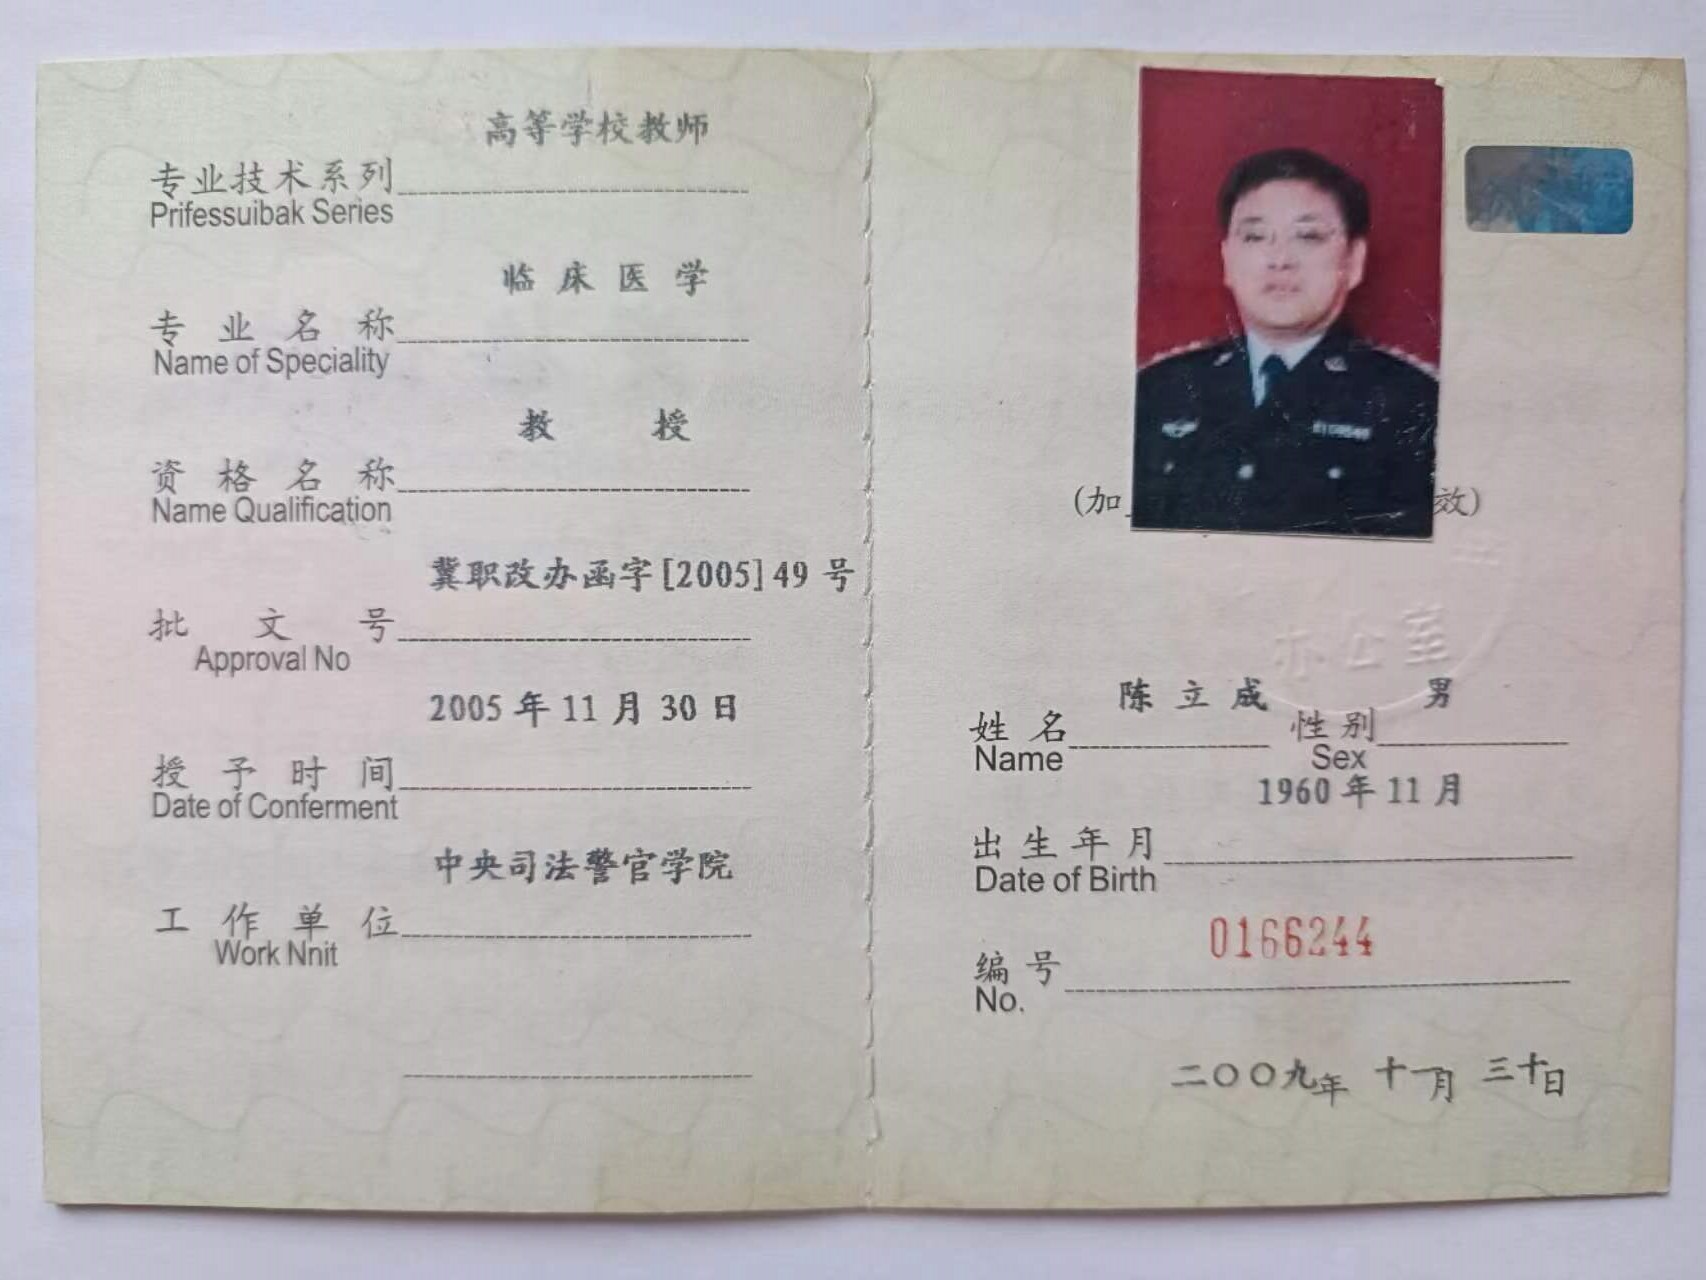 高等学校教师
专业技术系列
Prifessuibak Series
临床医学
专业名称
Name of Speciality
教授
资格名称
Name Qualification
冀职改办函字[2005]49号
批文号
Approval No
2005年11月30日
授予时间
Date of Conferment
中央司法警官学院
工作单位
Work Nnit
(加
效)
办公室
陈立成 男
姓名 性别
Name Sex
1960年11月
出生年月
Date of Birth
0166244
编号
No.
二〇〇九年 十一月 三十日